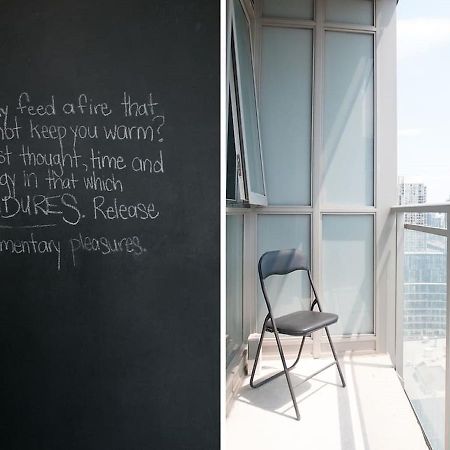 y feed a fire that
not keep you warm?
st thought, time and
gy in that which
DURES. Release
mentary pleasures.